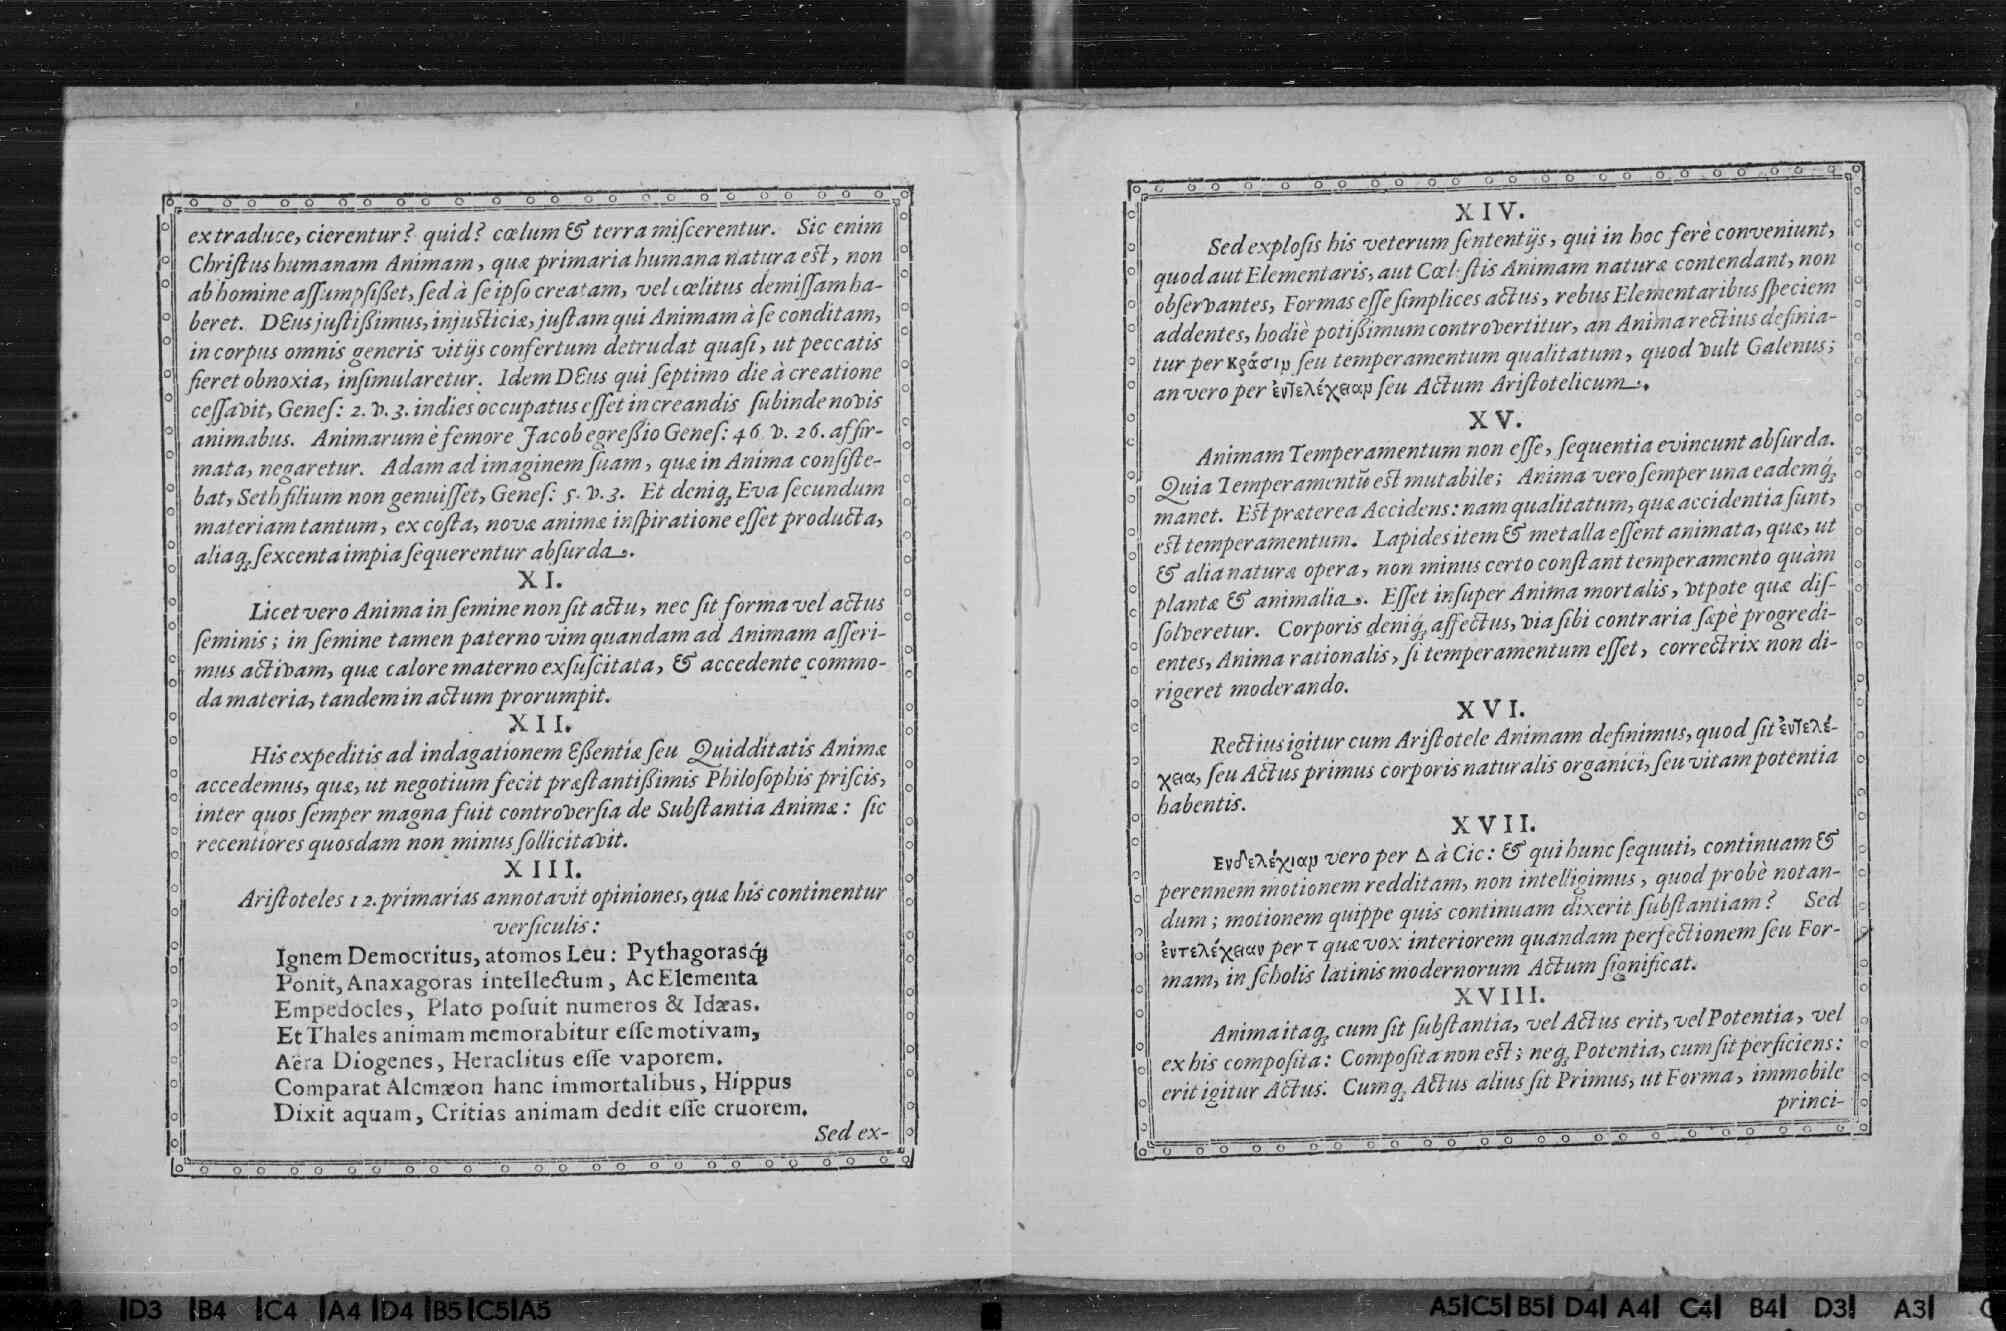 ex traduce, cierentur? quid? cœlum & terra miſcerentur. Sic enim
Chriſtus humanam Animam, quæ primaria humana natura eſt, non
ab homine aſſumpſiſſet, ſed à ſe ipſo creatam, vel cœlitus demiſſam ha-
beret. DEus juſtißimus, injuſticiæ, juſtam qui Animam à ſe conditam,
in corpus omnis generis vitijs confertum detrudat quaſi, ut peccatis
fieret obnoxia, inſimularetur. Idem DEus qui ſeptimo die à creatione
ceſſavit, Geneſ: 2. v. 3. indies occupatus eſſet in creandis ſubinde novis
animabus. Animarum è femore Jacob egreßio Geneſ: 46 v. 26. affir-
mata, negaretur. Adam ad imaginem ſuam, quæ in Anima conſiſte-
bat, Seth filium non genuiſſet, Geneſ: 5. v. 3. Et deniq; Eva ſecundum
materiam tantum, ex coſta, novæ animæ inſpiratione eſſet producta,
aliaq; ſexcenta impia ſequerentur abſurda.
XI.
Licet vero Anima in ſemine non ſit actu, nec ſit forma vel actus
ſeminis; in ſemine tamen paterno vim quandam ad Animam aſſeri-
mus activam, quæ calore materno exſuſcitata, & accedente commo-
da materia, tandem in actum prorumpit.
XII.
His expeditis ad indagationem Eßentiæ ſeu Quidditatis Animæ
accedemus, quæ, ut negotium fecit præſtantißimis Philoſophis priſcis,
inter quos ſemper magna fuit controverſia de Subſtantia Animæ: ſic
recentiores quosdam non minus ſollicitavit.
XIII.
Ariſtoteles 12. primarias annotavit opiniones, quæ his continentur
verſiculis:
Ignem Democritus, atomos Leu: Pythagorasq́;
Ponit, Anaxagoras intellectum, Ac Elementa
Empedocles, Plato poſuit numeros & Idæas.
Et Thales animam memorabitur eſſe motivam,
Aëra Diogenes, Heraclitus eſſe vaporem.
Comparat Alcmæon hanc immortalibus, Hippus
Dixit aquam, Critias animam dedit eſſe cruorem.
Sed ex-
XIV.
Sed exploſis his veterum ſententijs, qui in hoc ferè conveniunt,
quod aut Elementaris, aut Cœleſtis Animam naturæ contendant, non
obſervantes, Formas eſſe ſimplices actus, rebus Elementaribus ſpeciem
addentes, hodiè potißimum controvertitur, an Anima rectius definia-
tur per κράσιν ſeu temperamentum qualitatum, quod vult Galenus;
an vero per ἐντελέχειαν ſeu Actum Ariſtotelicum.
XV.
Animam Temperamentum non eſſe, ſequentia evincunt abſurda.
Quia Temperamentũ eſt mutabile; Anima vero ſemper una eademq́;
manet. Eſt præterea Accidens: nam qualitatum, quæ accidentia ſunt,
eſt temperamentum. Lapides item & metalla eſſent animata, quæ, ut
& alia naturæ opera, non minus certo conſtant temperamento quàm
plantæ & animalia. Eſſet inſuper Anima mortalis, vtpote quæ diſ-
ſolveretur. Corporis deniq; affectus, via ſibi contraria ſæpè progredi-
entes, Anima rationalis, ſi temperamentum eſſet, correctrix non di-
rigeret moderando.
XVI.
Rectius igitur cum Ariſtotele Animam definimus, quod ſit ἐντελέ-
χεια, ſeu Actus primus corporis naturalis organici, ſeu vitam potentia
habentis.
XVII.
Ενδελέχιαν vero per Δ à Cic: & qui hunc ſequuti, continuam &
perennem motionem redditam, non intelligimus, quod probè notan-
dum; motionem quippe quis continuam dixerit ſubſtantiam? Sed
ἐντελέχειαν per τ quæ vox interiorem quandam perfectionem ſeu For-
mam, in ſcholis latinis modernorum Actum ſignificat.
XVIII.
Anima itaq; cum ſit ſubſtantia, vel Actus erit, vel Potentia, vel
ex his compoſita: Compoſita non eſt; neq; Potentia, cum ſit perficiens:
erit igitur Actus. Cumq; Actus alius ſit Primus, ut Forma, immobile
princi-
D3 B4 C4 A4 D4 B5 C5 A5
A5 C5 B5 D4 A4 C4 B4 D3 A3